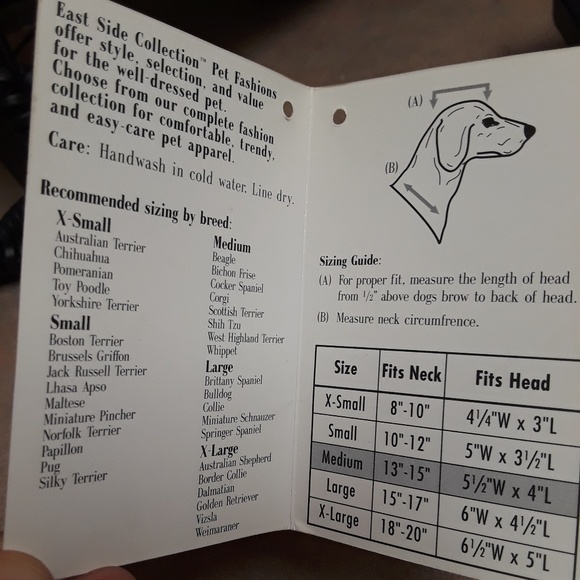 East Side Collection™ Pet Fashions
offer style, selection, and value
for the well-dressed pet.
Choose from our complete fashion
collection for comfortable, trendy,
and easy-care pet apparel.
Care: Handwash in cold water. Line dry.
Recommended sizing by breed:
X-Small
Australian Terrier
Chihuahua
Pomeranian
Toy Poodle
Yorkshire Terrier
Small
Boston Terrier
Brussels Griffon
Jack Russell Terrier
Lhasa Apso
Maltese
Miniature Pincher
Norfolk Terrier
Papillon
Pug
Silky Terrier
Medium
Beagle
Bichon Frise
Cocker Spaniel
Corgi
Scottish Terrier
Shih Tzu
West Highland Terrier
Whippet
Large
Brittany Spaniel
Bulldog
Collie
Miniature Schnauzer
Springer Spaniel
X-Large
Australian Shepherd
Border Collie
Dalmatian
Golden Retriever
Vizsla
Weimaraner
(A)
(B)
Sizing Guide:
(A) For proper fit, measure the length of head
from 1/2" above dogs brow to back of head.
(B) Measure neck circumfrence.
Size Fits Neck Fits Head
X-Small 8"-10" 4 1/4"W x 3"L
Small 10"-12" 5"W x 3 1/2"L
Medium 13"-15" 5 1/2"W x 4"L
Large 15"-17" 6"W x 4 1/2"L
X-Large 18"-20" 6 1/2"W x 5"L